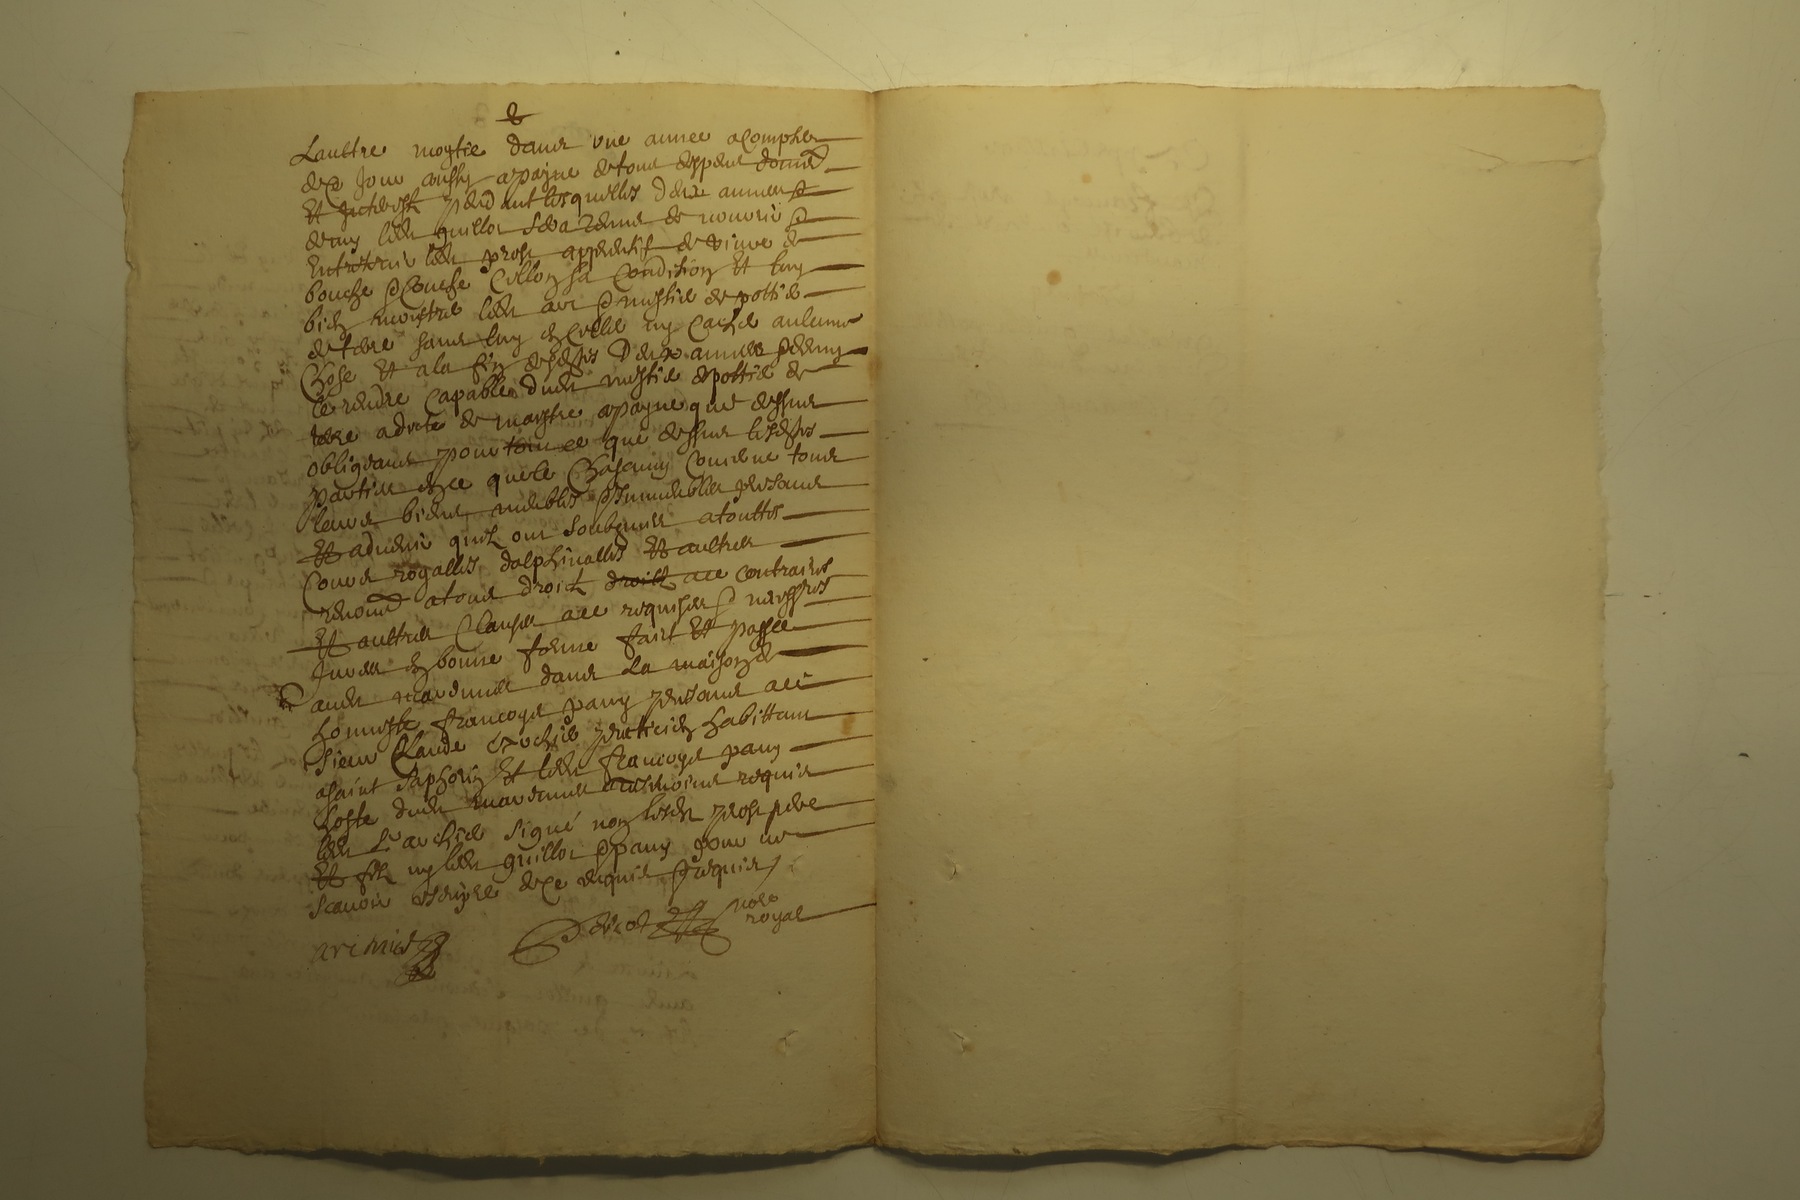 Laultre moytié dans une annee acompter
de ce jour aussy apayne de tous despens domd
Et Jnterestz pendant lesquelles deux annees &
demy led guillot sera tenus de nourir &
Entretenir led prost apprentif de vivre de
bouche & couche sellon sa condition Et luy
bien monstre led art & mestie de pottie
de terre sans luy en celle ny cache aulcune
chose Et a la fin desdictes deux annees & demy
le rendre capable dud mestie de pottie de
terre a dicte de maistre apayne que dessus
obligeans pour ce que dessus lesdictes
parties en ce que le chascung concerne tous
leurs biens meubles & Jmmeubles presans
Et advenir quilz ont soubzmis a touttes
Cours royalles dalphinalles Et aultres
renond a tous droictz droictz ace contraires
Et aultres clauses ace requises & necessres
Jurees en bonne forme faict Et passé
aud dans la maison de
honneste francoys pany presans ace
sieur Claude praticien habittant
asainct saphorin Et led francoys pany
hoste dud tesmoins requis
led sr signé non lesdz prost pere
Et filz ny led guillot & pany pour ne
scavoir escripre de ce enquis & requis
nore
royal